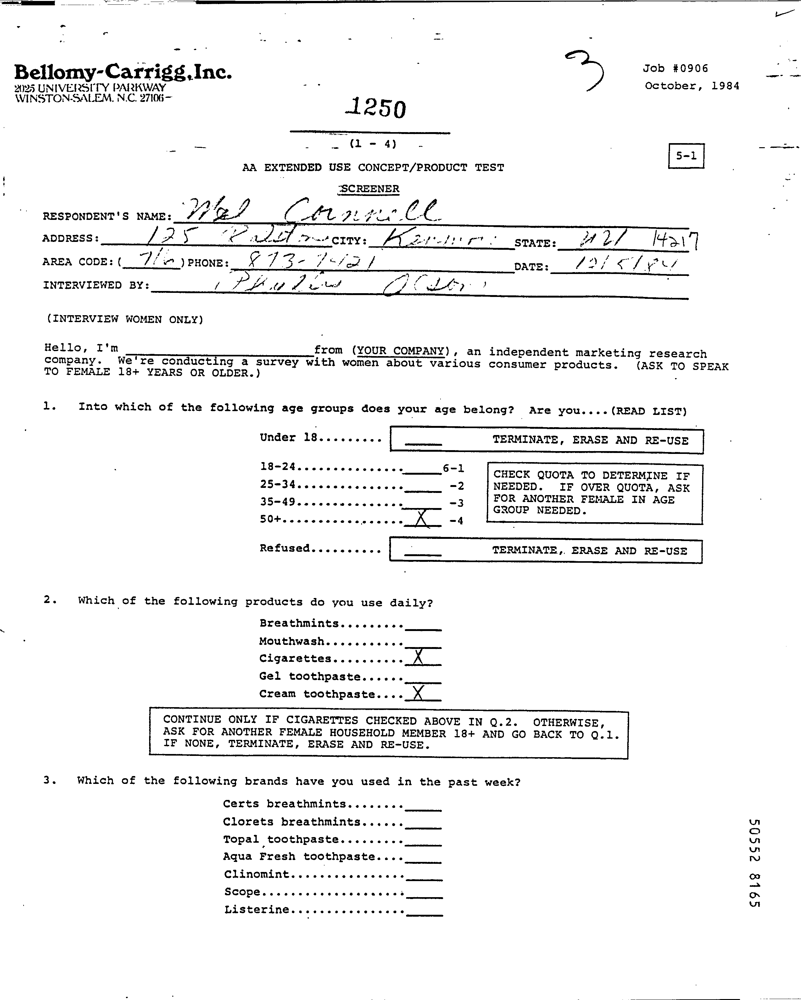 Bellomy-Carrigg, Inc.
2025 UNIVERSITY PARKWAY
WINSTON-SALEM, N.C. 27106
3
Job #0906
October, 1984
1250
(1 - 4)
5-1
AA EXTENDED USE CONCEPT/PRODUCT TEST
SCREENER
RESPONDENT'S NAME: Cornnell
ADDRESS: 125 CITY: STATE: 14217
AREA CODE: ( 716 ) PHONE: 873-7421 DATE: 10/5/84
INTERVIEWED BY: Olson
(INTERVIEW WOMEN ONLY)
Hello, I'm ____ from (YOUR COMPANY), an independent marketing research
company. We're conducting a survey with women about various consumer products. (ASK TO SPEAK
TO FEMALE 18+ YEARS OR OLDER.)
1. Into which of the following age groups does your age belong? Are you....(READ LIST)
Under 18......... ____ TERMINATE, ERASE AND RE-USE
18-24............... ____ 6-1
25-34............... ____ -2
35-49............... ____ -3
50+................. X -4
CHECK QUOTA TO DETERMINE IF
NEEDED. IF OVER QUOTA, ASK
FOR ANOTHER FEMALE IN AGE
GROUP NEEDED.
Refused.......... ____ TERMINATE, ERASE AND RE-USE
2. Which of the following products do you use daily?
Breathmints......... ____
Mouthwash........... ____
Cigarettes.......... X
Gel toothpaste...... ____
Cream toothpaste.... X
CONTINUE ONLY IF CIGARETTES CHECKED ABOVE IN Q.2. OTHERWISE,
ASK FOR ANOTHER FEMALE HOUSEHOLD MEMBER 18+ AND GO BACK TO Q.1.
IF NONE, TERMINATE, ERASE AND RE-USE.
3. Which of the following brands have you used in the past week?
Certs breathmints........ ____
Clorets breathmints...... ____
Topal toothpaste......... ____
Aqua Fresh toothpaste.... ____
Clinomint................ ____
Scope.................... ____
Listerine................ ____
50552 8165